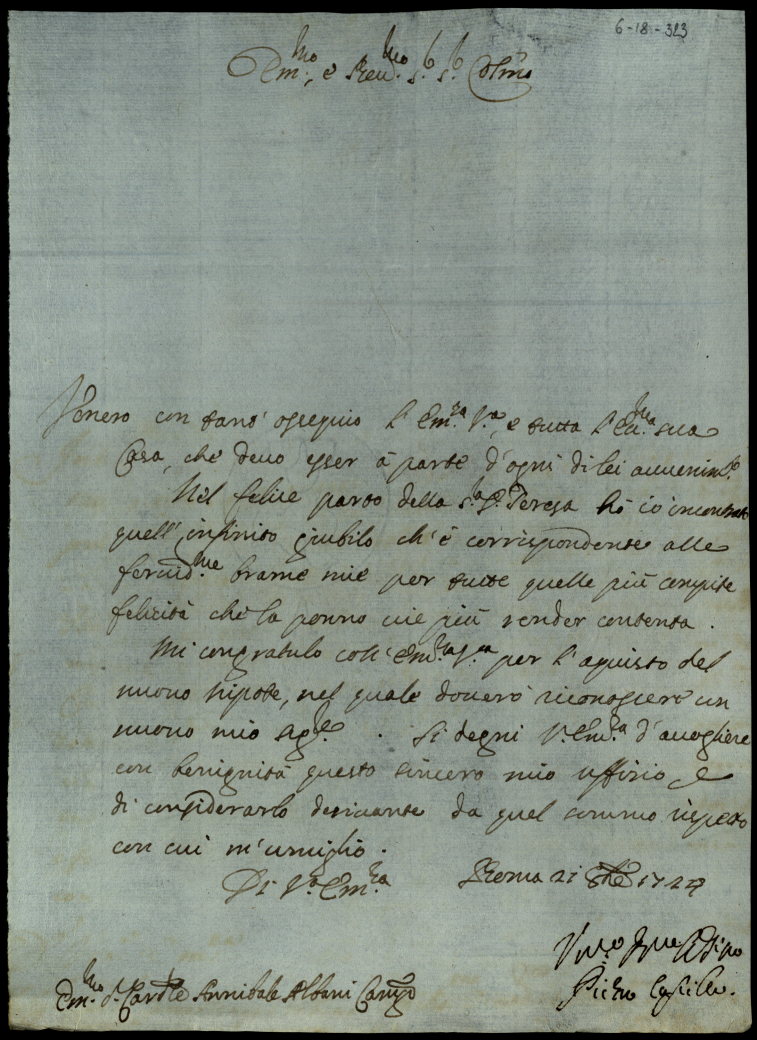 6-18-323
Em.mo, e Reu.mo S.r S.r Col.mo
Venero con tant' ossequio l'Em.za V.a, e tutta l'Ecc.ma sua
Casa, che deuo esser à parte d'ogni di lei auuenim.to
Nel felice parto della S.ra D. Teresa hò io incontrato
quell'infinito giubilo ch'è corrispondente alle
feruid.me brame mie per tutte quelle più compite
felicità che la ponno uie più render contenta.
Mi congratulo coll'Em.za V.a per l'aquisto del
nuouo Nipote, nel quale douerò riconoscere un
nuouo mio . Si degni V. Em.za d'accogliere
con benignità questo sincero mio uffizio e
di considerarlo deriuante da quel sommo rispetto
con cui m'umiglio.
Di V.a Em.za Roma 21 8bre 1724
Vm.o
Pietro
Em.mo S.r Card.le Annibale Albani Camgo